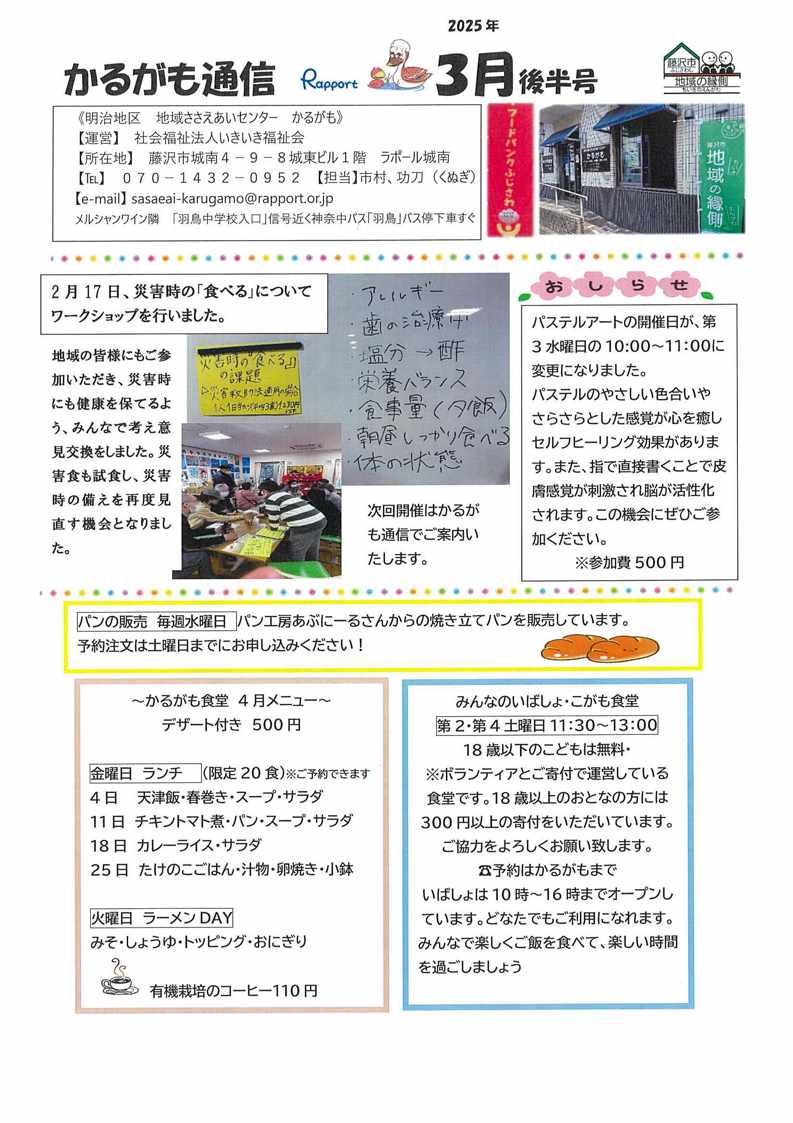 2025年
かるがも通信
Rapport
3月後半号
藤沢市
ふじさわし
地域の縁側
ちいきのえんがわ
《明治地区　地域ささえあいセンター　かるがも》
【運営】　社会福祉法人いきいき福祉会
【所在地】　藤沢市城南４－９－８城東ビル１階　ラポール城南
【℡】　０７０－１４３２－０９５２　【担当】市村、功刀（くぬぎ）
【e-mail】sasaeai-karugamo@rapport.or.jp
メルシャンワイン隣　「羽鳥中学校入口」信号近く神奈中バス「羽鳥」バス停下車すぐ
フードバンクふじさわ
かるがも
藤沢市
地域の縁側
2月17日、災害時の「食べる」について
ワークショップを行いました。
地域の皆様にもご参
加いただき、災害時
にも健康を保てるよ
う、みんなで考え意
見交換をしました。災
害食も試食し、災害
時の備えを再度見
直す機会となりまし
た。
災害時の「食べる」
の課題
・アレルギー
・歯の治療中
・塩分→酢
・栄養バランス
・食事量(夕飯)
・朝昼しっかり食べる
・体の状態
次回開催はかるが
も通信でご案内い
たします。
おしらせ
パステルアートの開催日が、第
3水曜日の10:00～11:00に
変更になりました。
パステルのやさしい色合いや
さらさらとした感覚が心を癒し
セルフヒーリング効果がありま
す。また、指で直接書くことで皮
膚感覚が刺激され脳が活性化
されます。この機会にぜひご参
加ください。
※参加費500円
パンの販売　毎週水曜日　パン工房あぶにーるさんからの焼き立てパンを販売しています。
予約注文は土曜日までにお申し込みください！
～かるがも食堂　4月メニュー～
デザート付き　500円
金曜日　ランチ　（限定20食）※ご予約できます
4日　天津飯・春巻き・スープ・サラダ
11日　チキントマト煮・パン・スープ・サラダ
18日　カレーライス・サラダ
25日　たけのこごはん・汁物・卵焼き・小鉢
火曜日　ラーメンDAY
みそ・しょうゆ・トッピング・おにぎり
有機栽培のコーヒー110円
みんなのいばしょ・こがも食堂
第2・第4土曜日11:30～13:00
18歳以下のこどもは無料・
※ボランティアとご寄付で運営している
食堂です。18歳以上のおとなの方には
300円以上の寄付をいただいています。
ご協力をよろしくお願い致します。
☎予約はかるがもまで
いばしょは10時～16時までオープンし
ています。どなたでもご利用になれます。
みんなで楽しくご飯を食べて、楽しい時間
を過ごしましょう